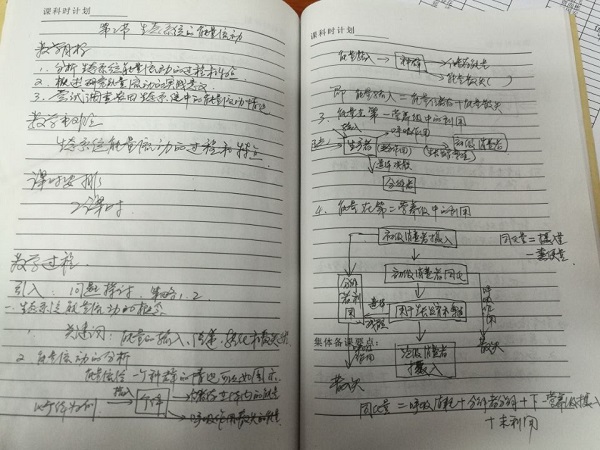 课科时计划
第2节 生态系统的能量流动
教学目标
1. 分析生态系统能量流动的过程和特点
2. 概述研究能量流动的实践意义
3. 尝试调查农田生态系统中的能量流动情况
教学重难点
生态系统能量流动的过程和特点
课时安排
2课时
教学过程
引入: 问题探讨 策略1, 2
一. 生态系统能量流动的概念
1. 关键词: 能量的输入、传递、转化和散失
2. 能量流动的分析
能量流经一个种群的情况可以如图示
以个体为例
输入
个体
课科时计划
能量输入
种群
能量储存
能量散失
即 能量输入 = 能量储存 + 能量散失
3. 能量在第一营养级中的利用
输入
呼吸作用
生产者
初级消费者
分解者
4. 能量在第二营养级中的利用
初级消费者摄入
同化量 = 摄入量
- 粪便量
初级消费者同化
分解者利用
用于生长发育和繁殖
呼吸作用
遗体
集体备课要点:
次级消费者
摄入
散失
散失
同化量 = 呼吸消耗 + 分解者分解 + 下一营养级摄入
+ 未利用